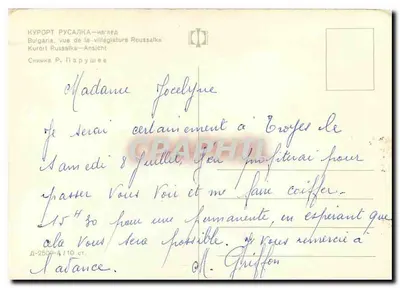 КУРОРТ РУСАЛКА—изглед
Bulgaria, vue de la villégiature Roussalka
Kurort Russalka—Ansicht
Снимка Р. Парушев
Madame Jocelyne
Je serai certainement à Troyes le
samedi 8 juillet, j'en profiterai pour
passer vous voir et me faire coiffer.
15 H 30 pour une permanente, en espérant que
cela vous sera possible. Je vous remercie à
l'advance.
M. Griffon
Д-2509-А/10 ст.
CPAPHIL